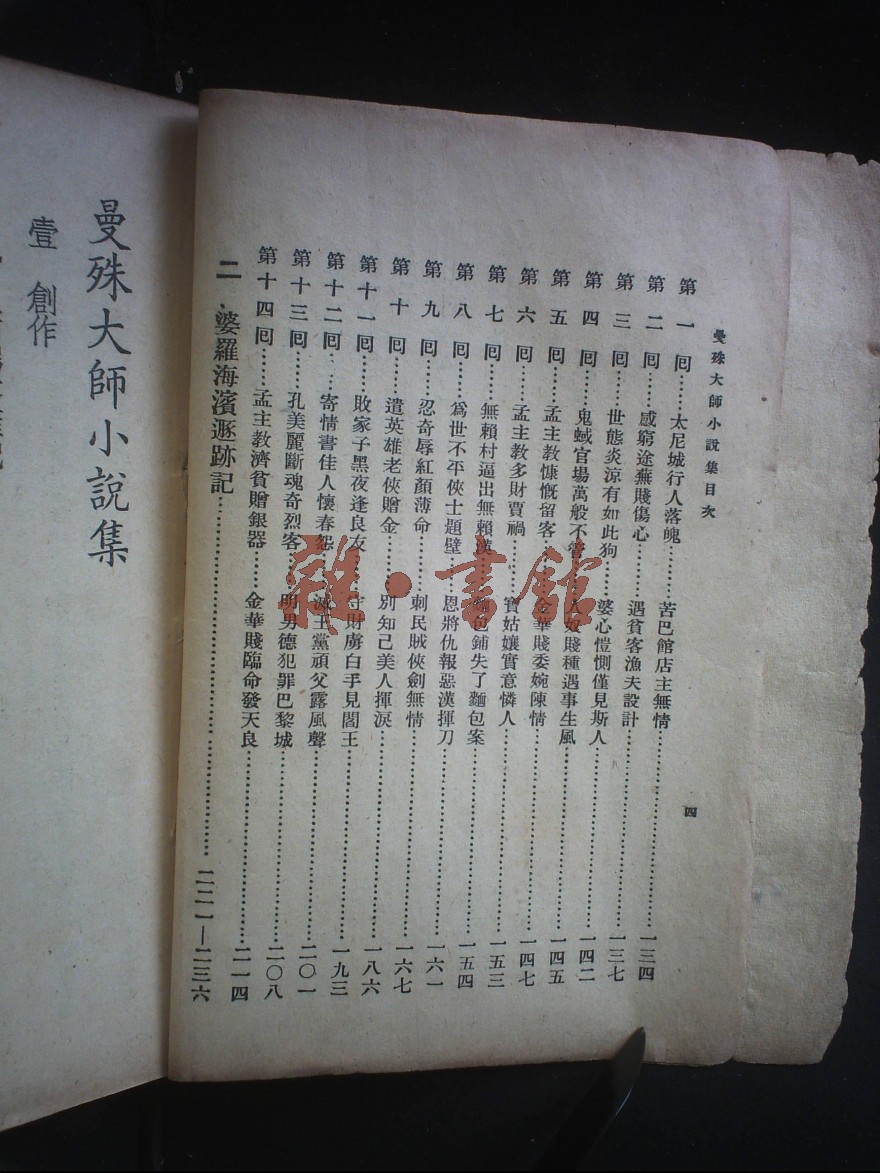 曼殊大師小說集目次
四
第一回……太尼城行人落魄……苦巴館店主無情……一三四
第二回……感窮途華賤傷心……遇貧客漁夫設計……一三七
第三回……世態炎涼有如此狗……婆心愷惻僅見斯人……一四二
第四回……鬼蜮官場萬般不管……人奴賤種遇事生風……一四五
第五回……孟主教慷慨留客……金華賤委婉陳情……一四七
第六回……孟主教多財賈禍……寶姑孃實意憐人……一五三
第七回……無賴村逼出無賴漢……麵包鋪失了麵包案……一五四
第八回……爲世不平俠士題壁……恩將仇報惡漢揮刀……一六一
第九回……忍奇辱紅顏薄命……刺民賊俠劍無情……一六七
第十回……遣英雄老俠贈金……別知己美人揮淚……一八六
第十一回……敗家子黑夜逢良友……守財虜白手見閻王……一九三
第十二回……寄情書佳人懷春怨……滅王黨頑父露風聲……二〇一
第十三回……孔美麗斷魂奇烈客……明男德犯罪巴黎城……二〇八
第十四回……孟主教濟貧贈銀器……金華賤臨命發天良……二一四
二 婆羅海濱遯跡記……二二一—二三六
曼殊大師小說集
壹 創作
雜·書館